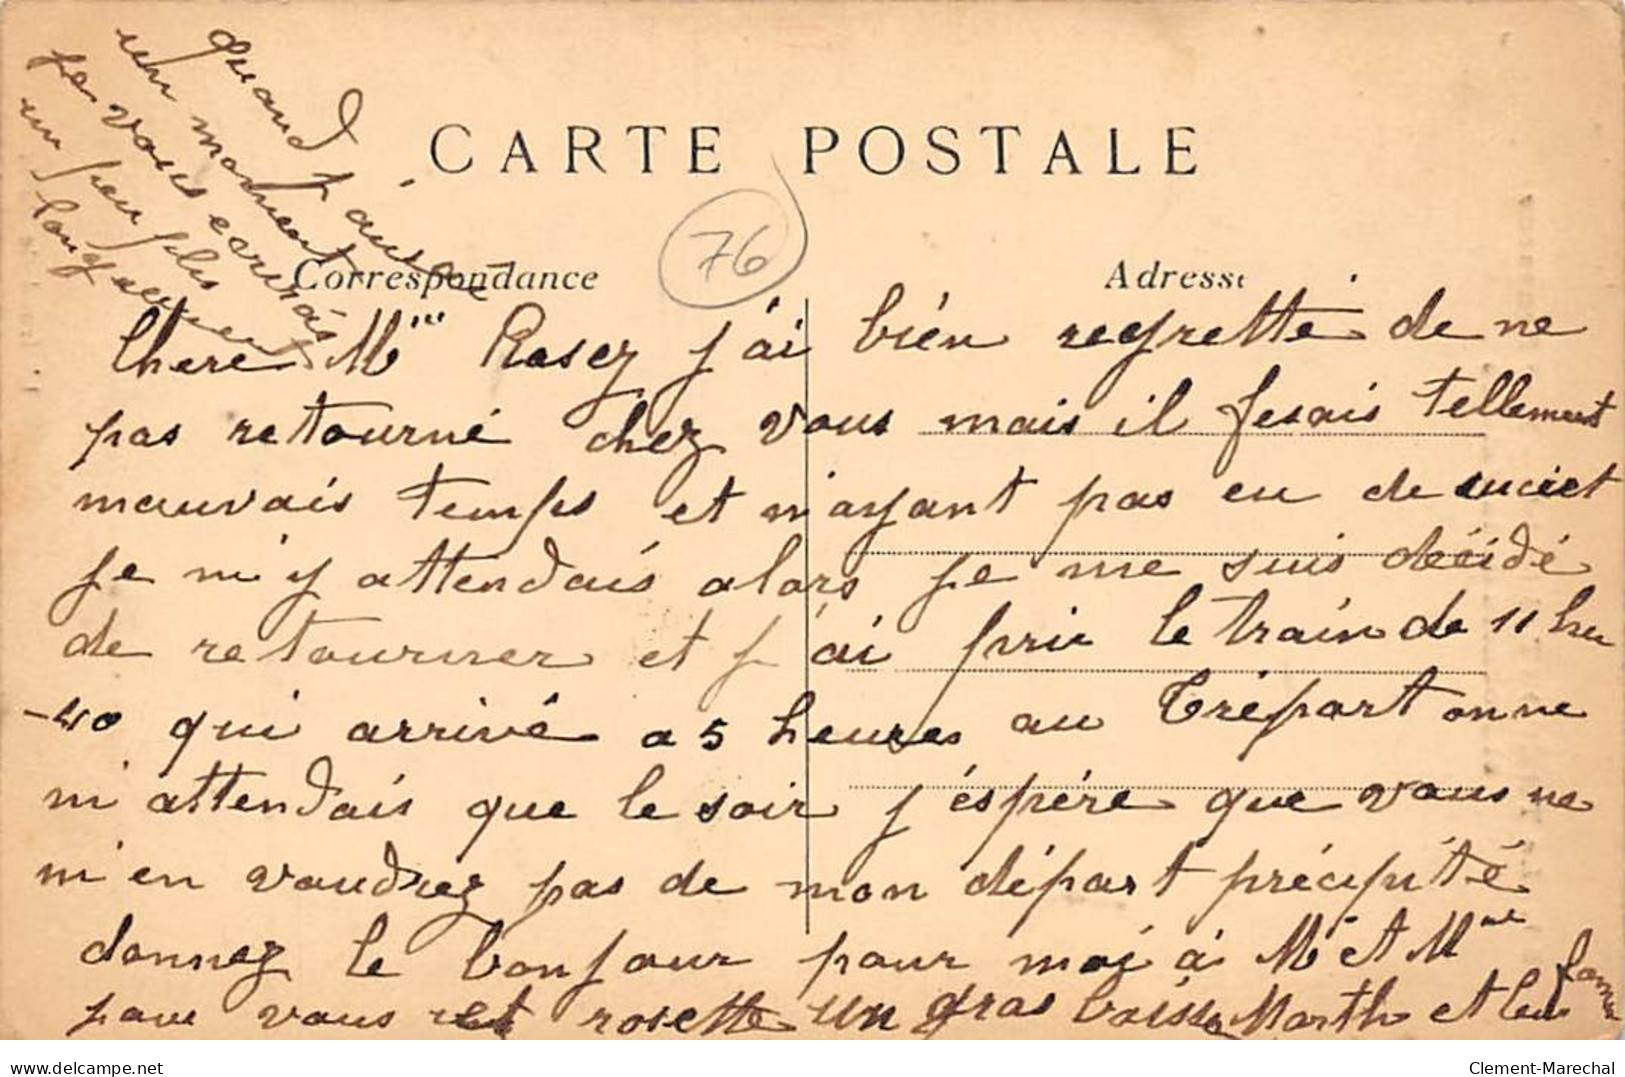 quand j'aurai
un moment
je vous ecrirais
un peu plus
longuement
CARTE POSTALE
76
Correspondance
Adresse
Chere Mme Rosez j'ai bién regretté de ne
pas retourné chez vous mais il fesais tellement
mauvais temps et n'ayant pas eu de
je m'y attendais alors je me suis décidé
de retourner et j'ai pris le train de 11 heu
-40 qui arrivé a 5 heures au Tréport onne
m'attendais que le soir j'éspére que vous ne
m'en voudrez pas de mon départ précipité
donnez le bonjour pour moi á Mr et Mme
pour vous et rosette un gros Marthe et
delcampe.net
Clement-Marechal